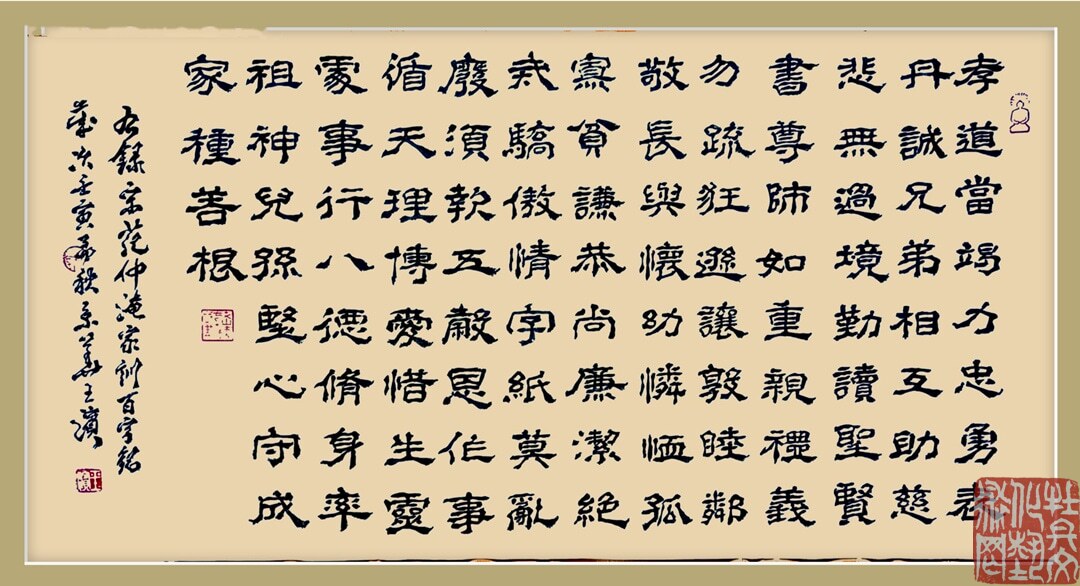 孝道當竭力忠勇表
丹誠兄弟相互助慈
悲無過境勤讀聖賢
書尊師如重親禮義
勿疏狂遜讓敦睦鄰
敬長與懷幼憐恤孤
寡貧謙恭尚廉潔絕
戒驕傲情字紙莫亂
廢須報五穀恩作事
循天理博愛惜生靈
處事行八德脩身率
祖神兒孫堅心守成
家種善根
右錄宋范仲淹家訓百字銘
歲次壬寅孟秋京華王濱